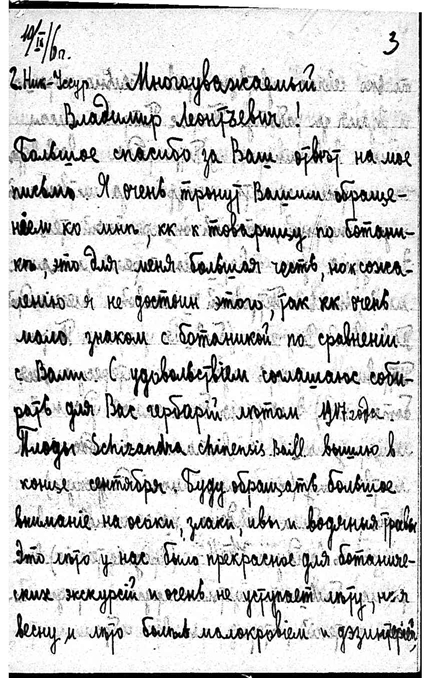 19/IX/16 г.
3
г. Ник-Уссур. Многоуважаемый
Владимир Леонтьевич!
Большое спасибо за Ваш отвѣт на мое
письмо. Я очень тронут Вашим обраще-
нѣем ко мнѣ, кк к товарищу по ботани-
кѣ, это для меня большая честь, но к сожа-
лению я не достоин этого, так кк очень
мало знаком с ботаникой по сравненiи
с Вами. С удовольствiем соглашаюс соби-
рать для Вас гербарiй лѣтом 1917 года.
Плоды Schizandra chinensis Baill вышлю в
конце сентября. Буду обращать большое
вниманiе на осоки, злаки, ивы и водяныя травы
Это лѣто у нас было прекрасное для ботаниче-
ских экскурсiй и осень не уступает лѣту, но я
весну и лѣто болѣл малокровiем и дэзинтерiей,